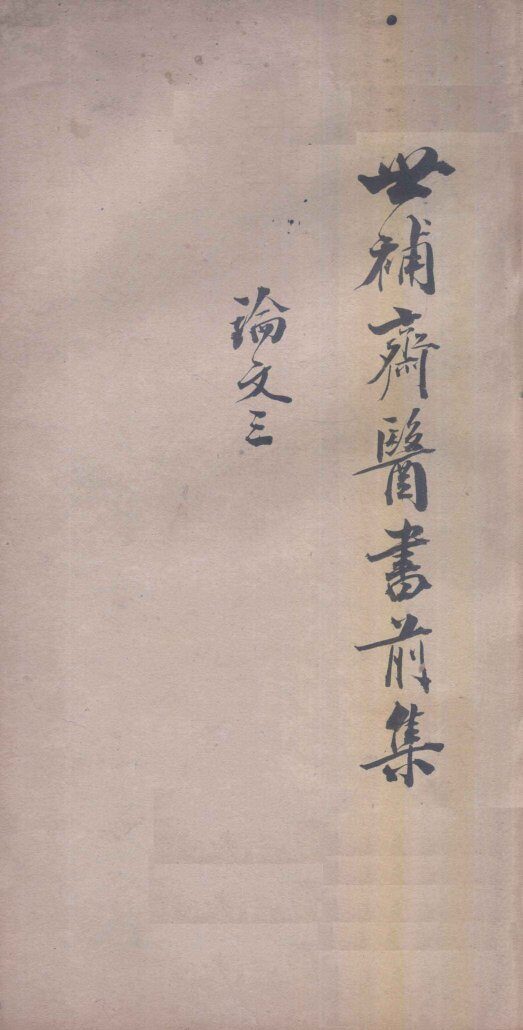 世補齋醫書前集
論文三